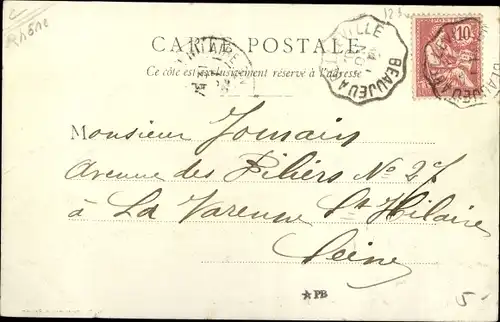 Rhône
CARTE POSTALE
Ce côté est exclusivement réservé à l'adresse
BEAUJEU A
10
Monsieur Jomain
Avenue des Piliers No 27
à La Varenne St Hilaire
Seine
★PB
5